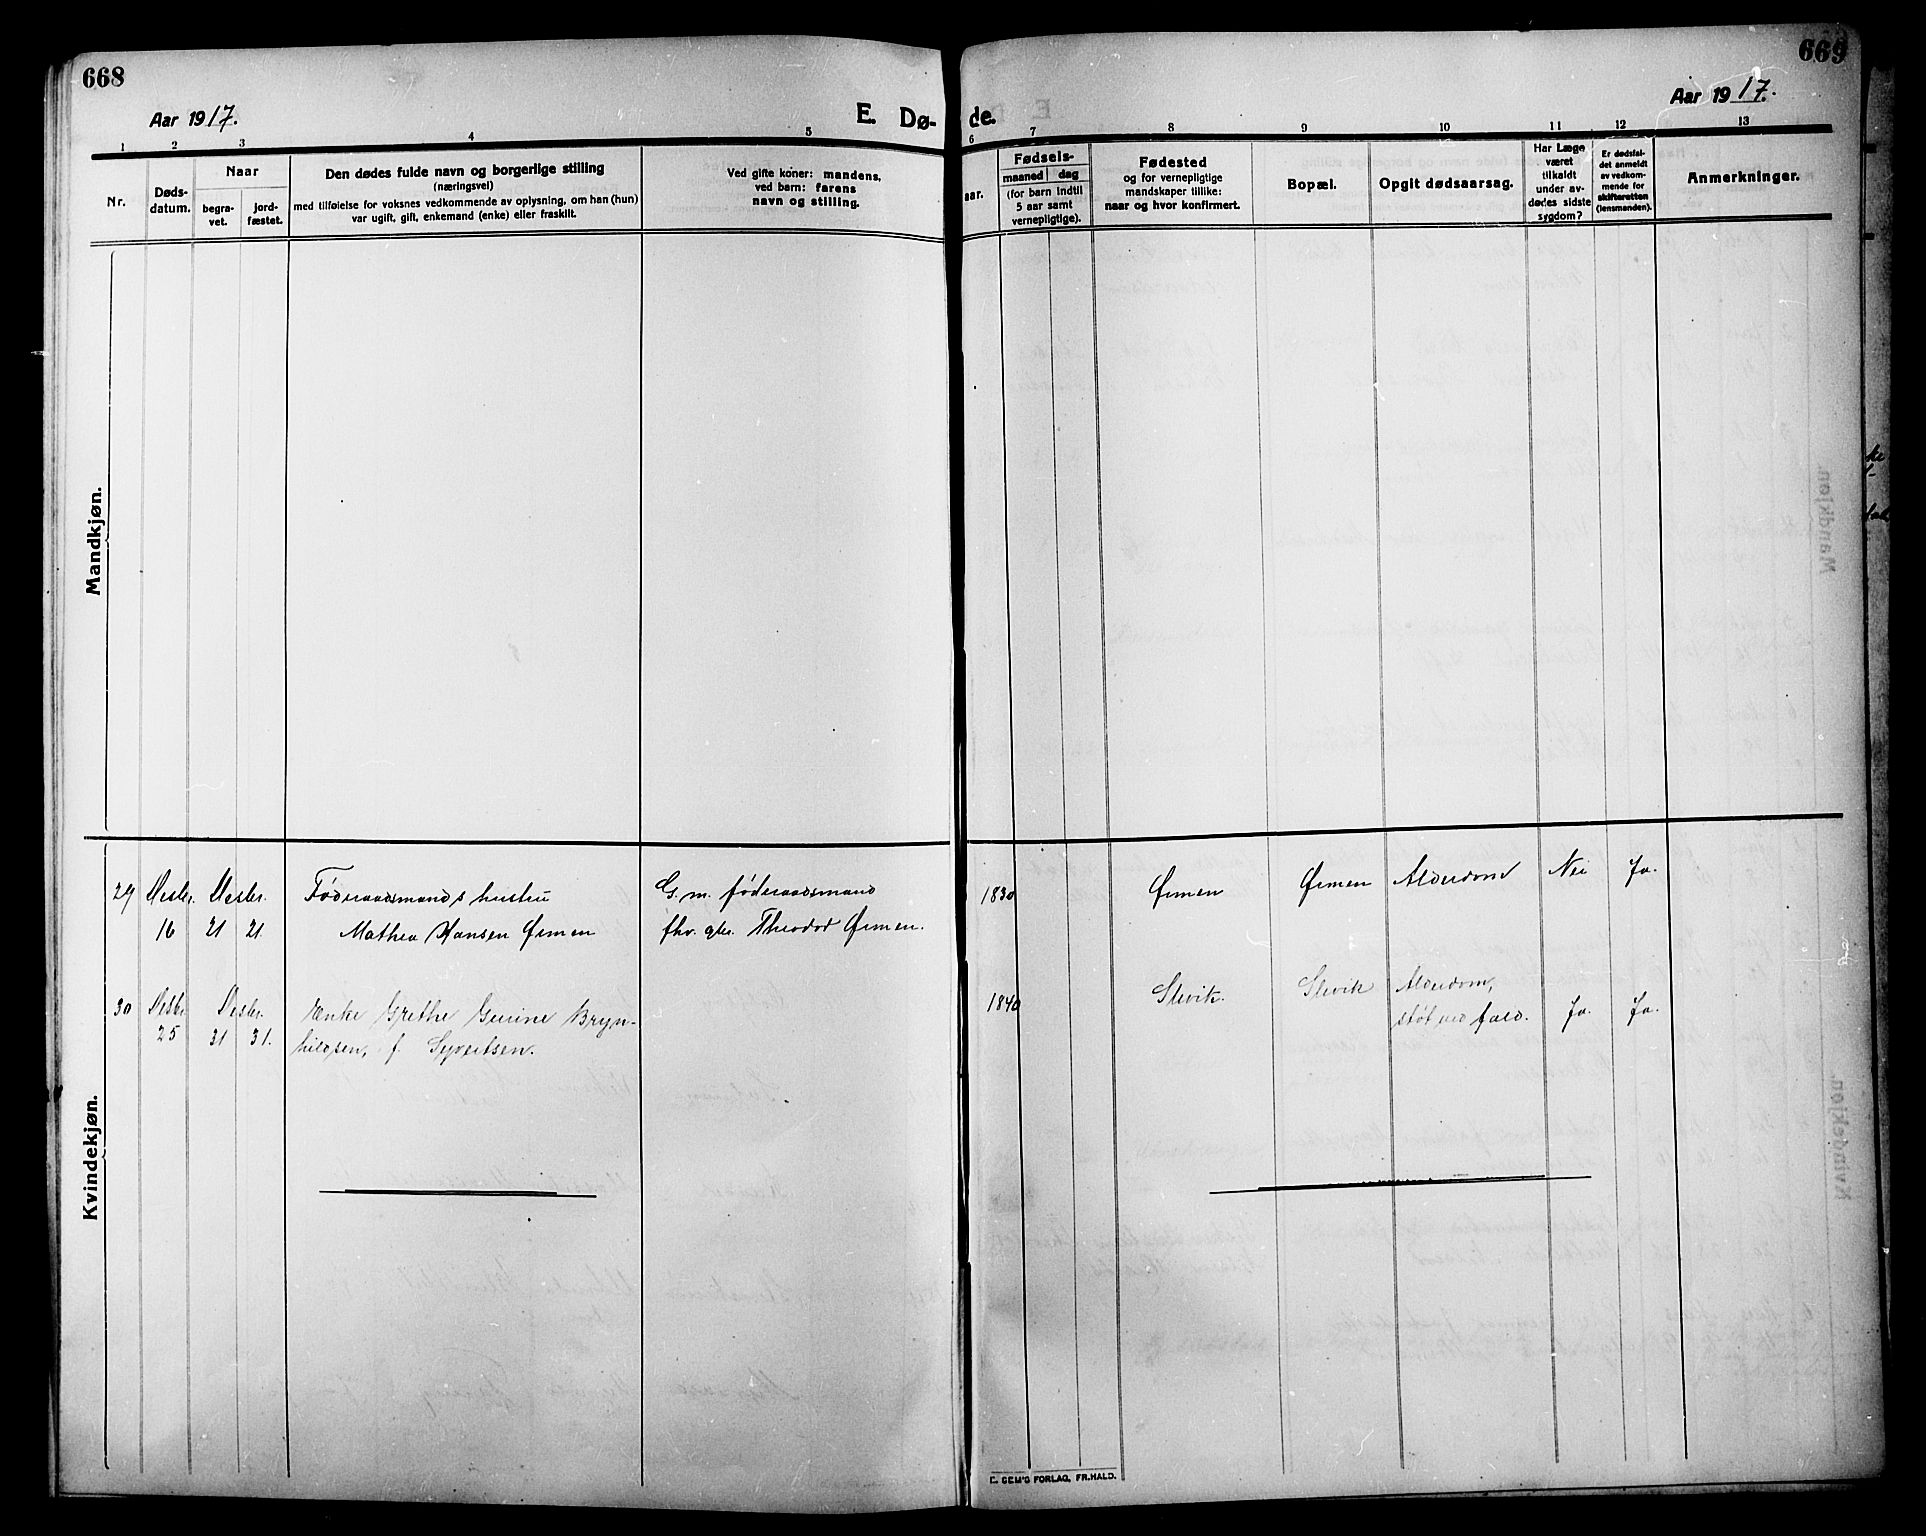 668
669
Aar 1917.
E. Dø-
de.
Aar 1917.
1 2 3 4 5 6 7 8 9 10 11 12 13
Nr.
Døds-
datum.
Naar
begra-
vet.
jord-
fæstet.
Den dødes fulde navn og borgerlige stilling
(næringsvei)
med tilføielse for voksnes vedkommende av oplysning, om han (hun)
var ugift, gift, enkemand (enke) eller fraskilt.
Ved gifte koner: mandens,
ved barn: farens
navn og stilling.
aar.
Fødsels-
maaned dag
(for barn indtil
5 aar samt
vernepligtige).
Fødested
og for vernepligtige
mandskaper tillike:
naar og hvor konfirmert.
Bopæl.
Opgit dødsaarsag.
Har Læge
været
tilkaldt
under av-
dødes sidste
sygdom?
Er dødsfal-
det anmeldt
av vedkom-
mende for
skifteretten
(lensmanden).
Anmerkninger.
Mandkjøn.
Kvindekjøn.
29 Desbr. Desbr. Føderaadsmands hustru G. m. føderaadsmand 1830 Ørmen Ørmen Alderdom Nei Ja.
16 21 21. Mathea Hansen Ørmen fhv. gbr. Theodor Ørmen.
30 Desbr. Desbr. Enke Grethe Gurine Bryn- 1840 Slevik. Slevik Alderdom,
25 31 31. hildsen, f. Syvertsen. støt ved fald. Ja. Ja.
E. SEM'S FORLAG, FR.HALD.